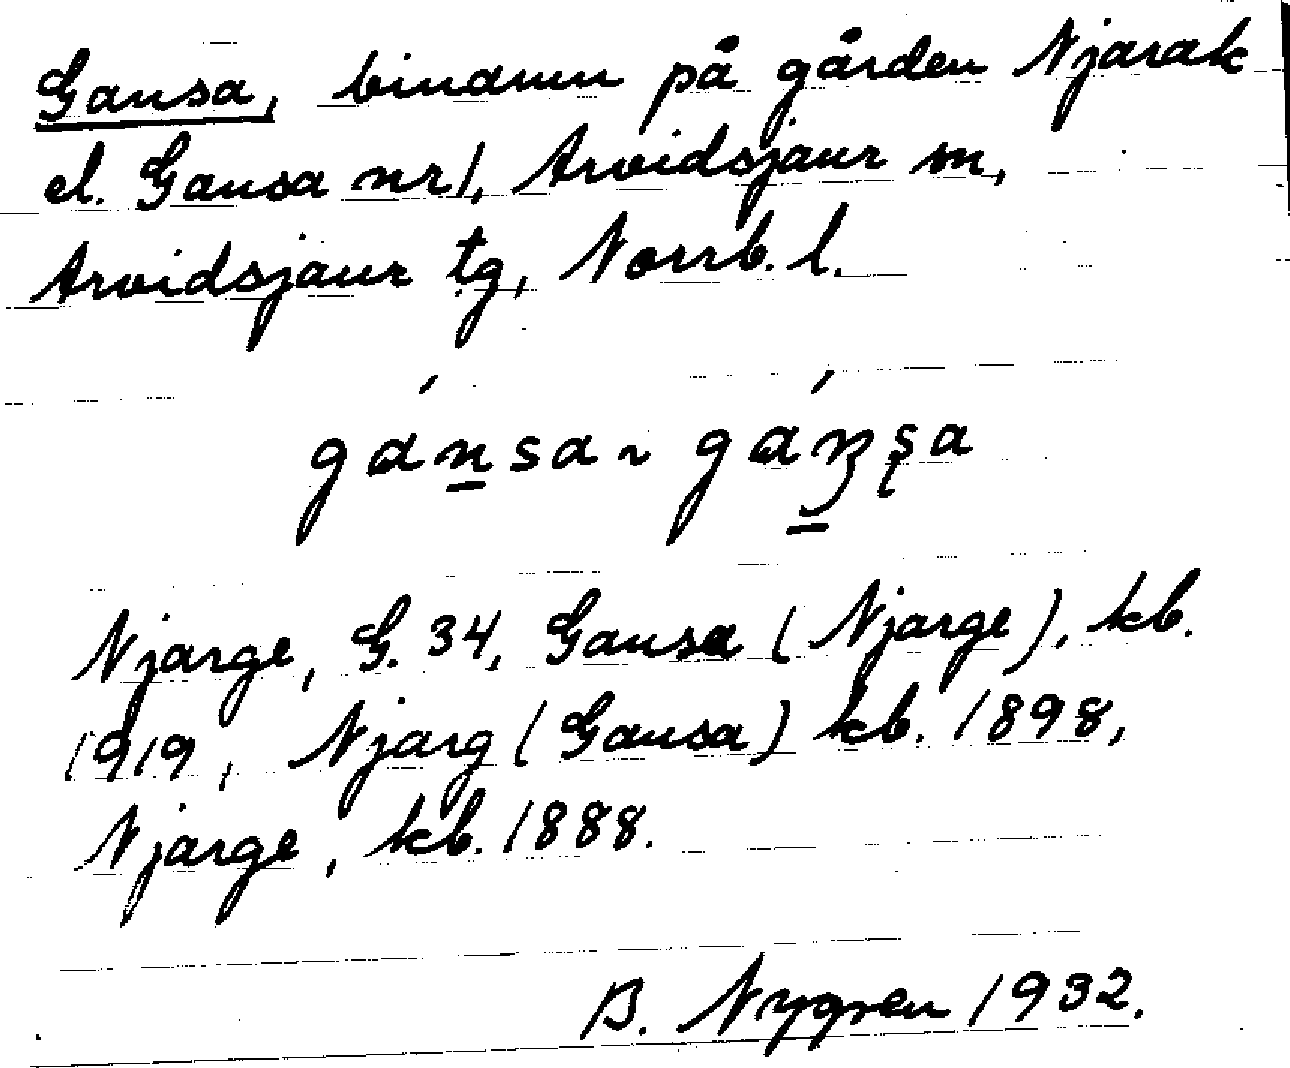 Gansa, binamn på gården Njarak
el. Gansa nr 1, Arvidsjaur sn,
Arvidsjaur tg, Norrb. l.
gánsa ~ gánsa
Njarge, G. 34, Gansa (Njarge), kb.
1919, Njarg (Gansa) kb. 1898,
Njarge, kb. 1888.
B. Nygren 1932.